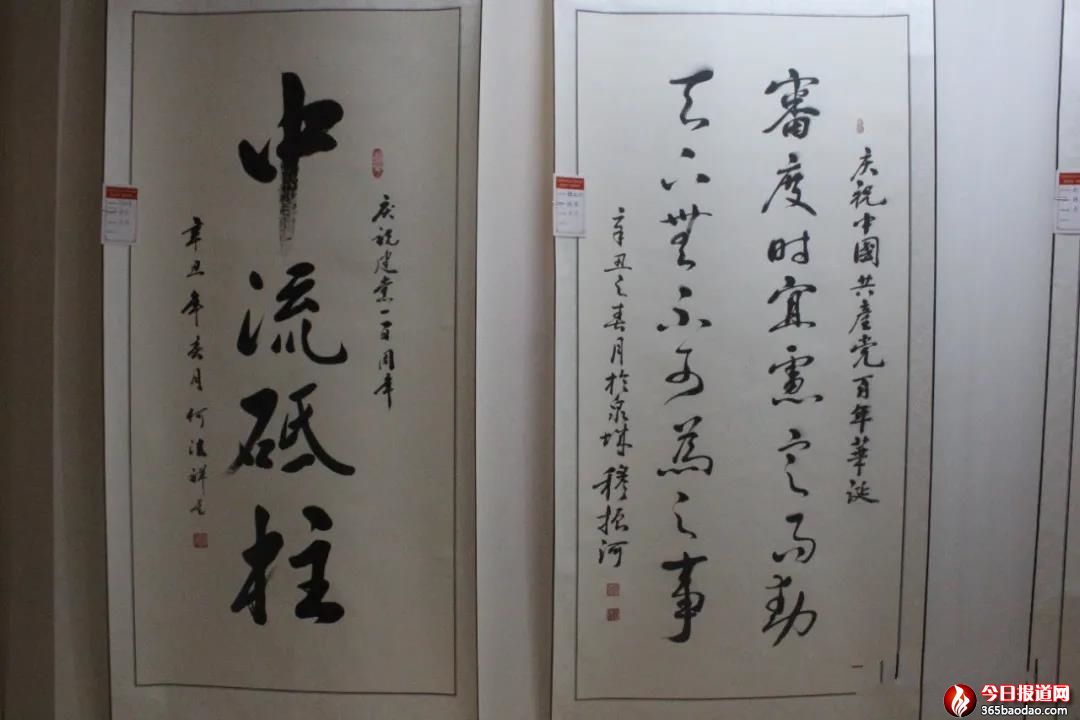 庆祝建党一百周年
中流砥柱
辛丑年春月何
庆祝中國共產党百年華诞
審度时宜慮定而動
天下無不可為之事
辛丑之春月於泉城穆振河
今日报道网
365baodao.com